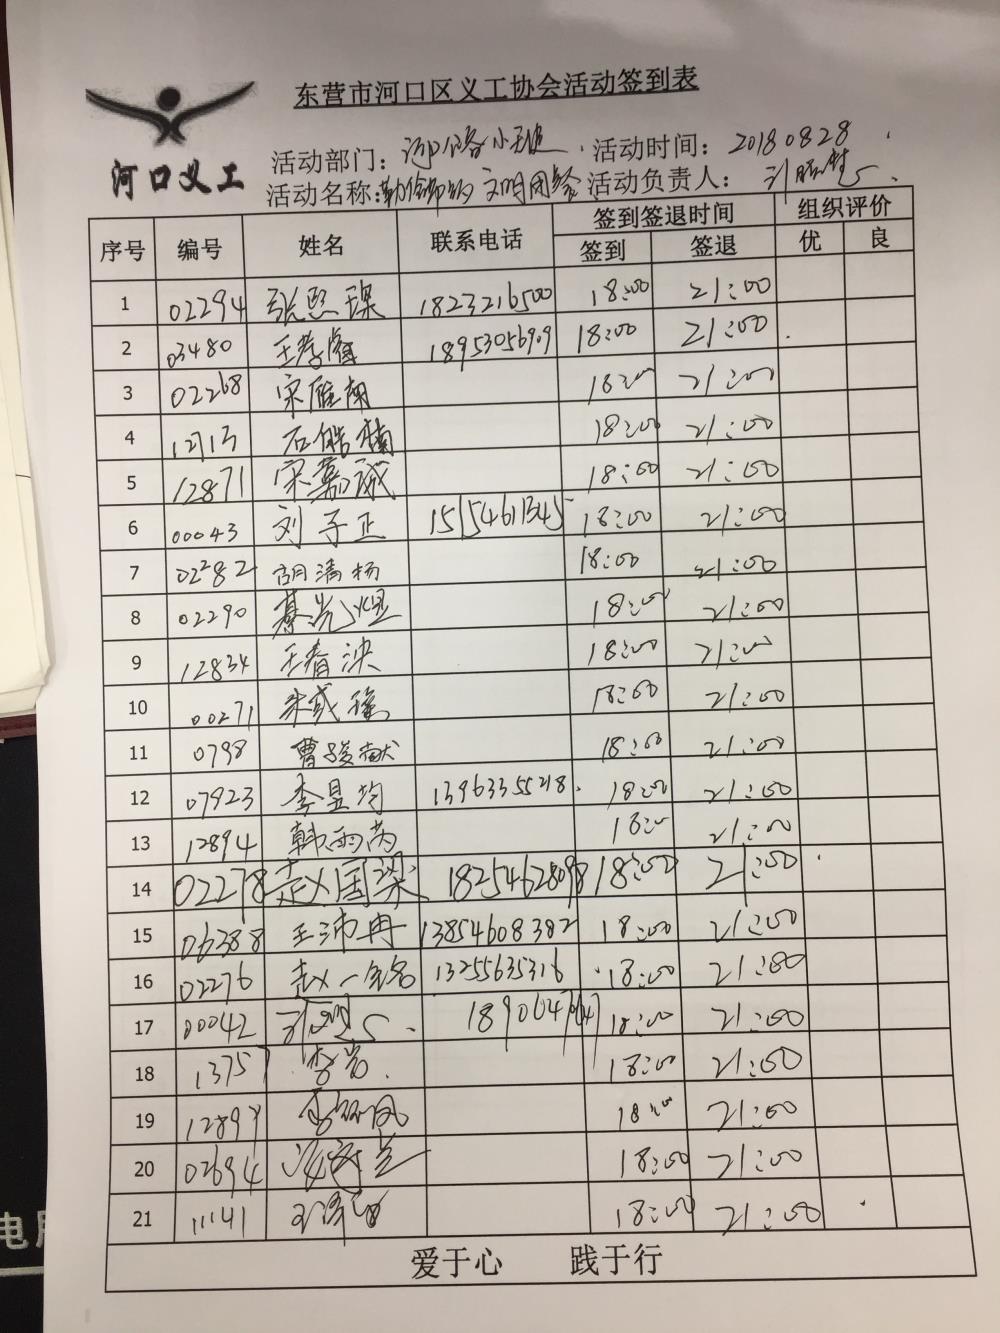 东营市河口区义工协会活动签到表
河口义工
活动部门: 小天使 活动时间: 20180828
活动名称: 勤俭节约 文明团餐 活动负责人:
序号 编号 姓名 联系电话 签到签退时间 组织评价
签到 签退 优 良
1 02294 张熙琛 1823216500 18:00 21:00
2 03480 王孝 18953056909 18:00 21:00
3 02268 宋雁南 18:00 21:00
4 12713 石皓楠 18:00 21:00
5 12871 宋嘉诚 18:00 21:00
6 00043 刘子正 15154611345 18:00 21:00
7 02282 胡清杨 18:00 21:00
8 02290 綦光煜 18:00 21:00
9 12834 王春泱 18:00 21:00
10 00271 朱彧瑶 18:00 21:00
11 0798 曹骏献 18:00 21:00
12 07923 李昱均 18:00 21:00
13 12894 韩雨芮 18:00 21:00
14 02278 赵国梁 18254628098 18:00 21:00
15 06388 王沛冉 13854608382 18:00 21:00
16 02276 赵一铭 13255635316 18:00 21:00
17 00042 18:00 21:00
18 13757 李岩 18:00 21:00
19 18:00 21:00
20 02694 18:00 21:00
21 11141 18:00 21:00
爱于心 践于行
电